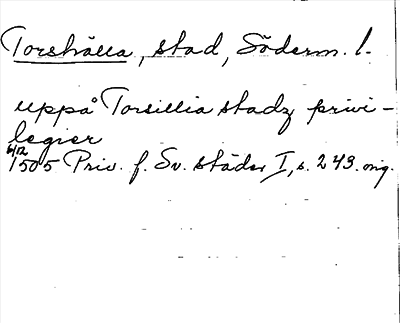 Torshälla, stad, Söderm. l.
uppå Torsillia stadz privi-
legier
6/12
1505 Priv. f. Sv. städer I, s. 243. orig.